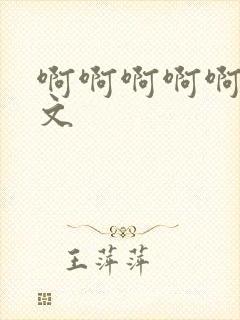 啊啊啊啊啊
文
王萍萍